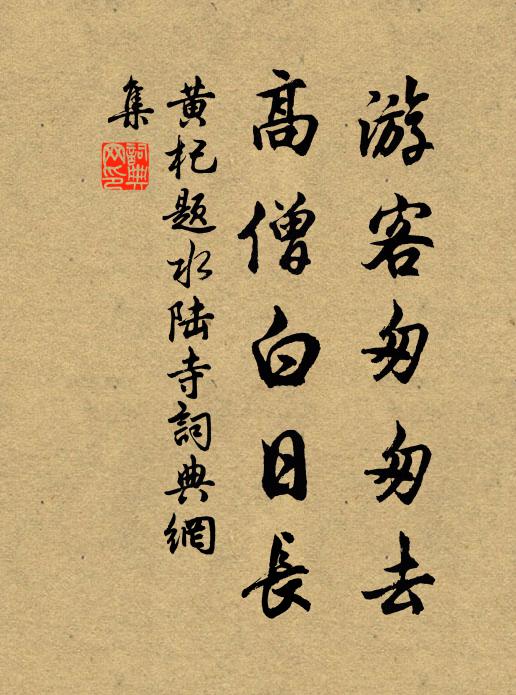 游客匆匆去
高僧白日長
黄杞题水陆寺詞典網
集
詞典
网印